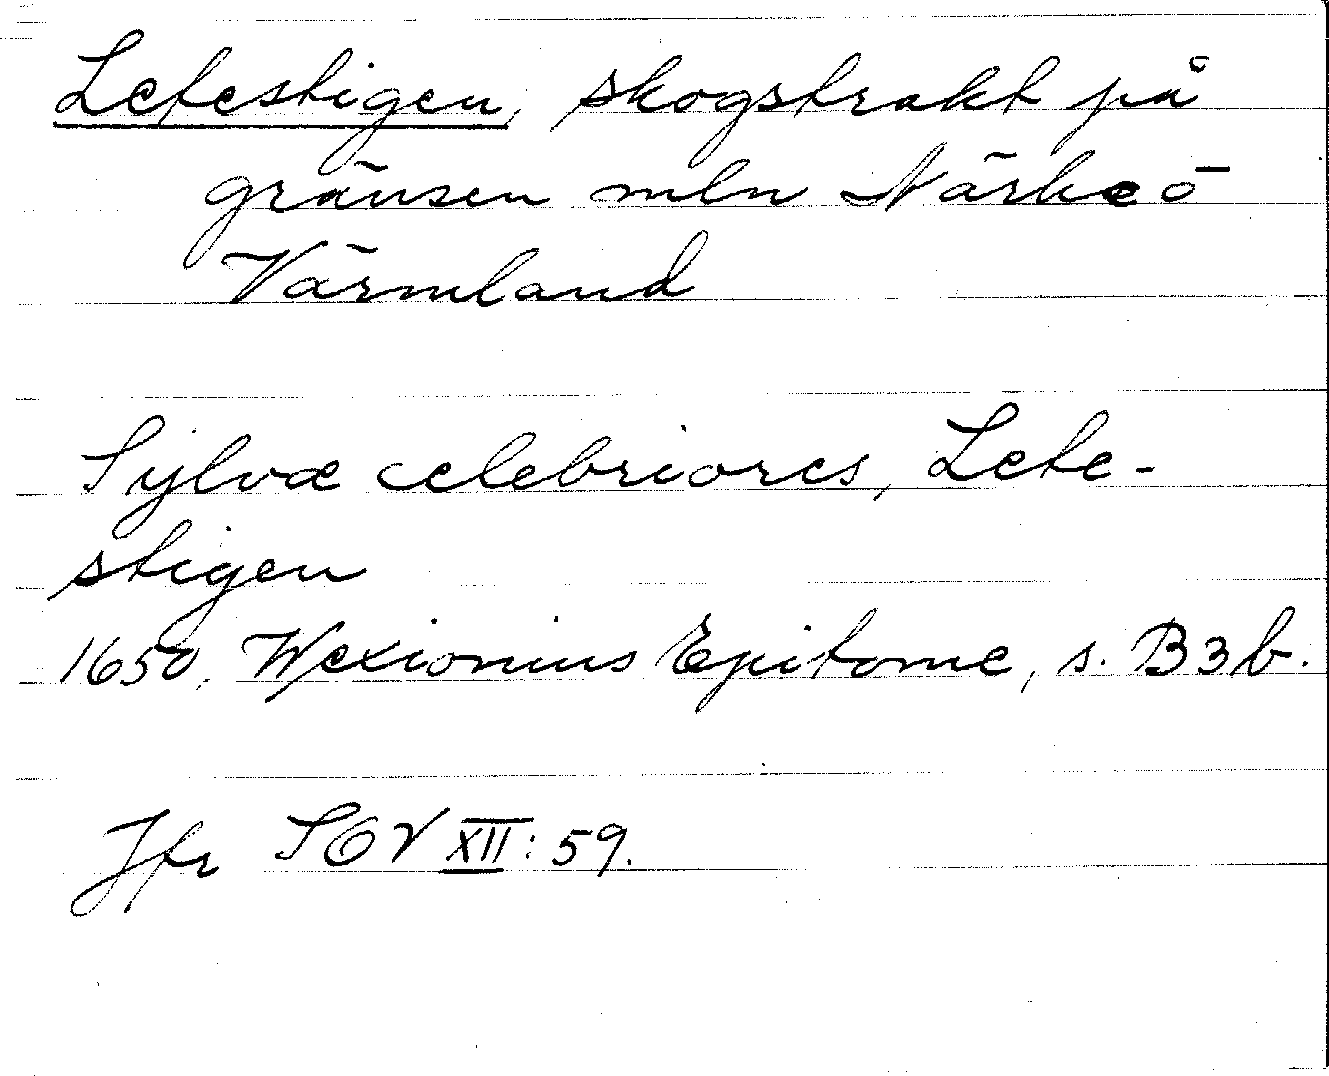 Letestigen, skogstrakt på
gränsen mln Närke o
Värmland
Sylvæ celebriores, Lete-
stigen
1650, Wexionius Epitome, s. B3b.
Jfr SOV XII: 59.